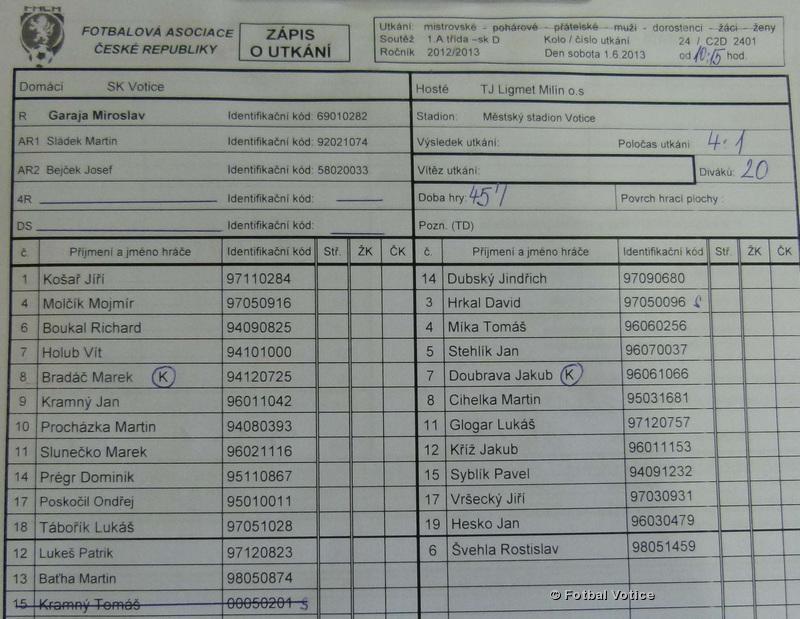 FOTBALOVÁ ASOCIACE
ČESKÉ REPUBLIKY
ZÁPIS
O UTKÁNÍ
Utkání: mistrovské - pohárové - přátelské - muži - dorostenci - žáci - ženy
Soutěž 1.A třída –sk D Kolo / číslo utkání 24 / C2D 2401
Ročník 2012/2013 Den sobota 1.6.2013 od 10:15 hod.
Domácí SK Votice
Hosté TJ Ligmet Milín o.s
R Garaja Miroslav Identifikační kód: 69010282
Stadion: Městský stadion Votice
AR1 Sládek Martin Identifikační kód: 92021074
Výsledek utkání: Poločas utkání 4:1
AR2 Bejček Josef Identifikační kód: 58020033
Vítěz utkání: Diváků: 20
4R Identifikační kód:
Doba hry: 45' Povrch hrací plochy :
DS Identifikační kód:
Pozn. (TD)
č. Příjmení a jméno hráče Identifikační kód Stř. ŽK ČK
1 Košař Jiří 97110284
4 Molčík Mojmír 97050916
6 Boukal Richard 94090825
7 Holub Vít 94101000
8 Bradáč Marek K 94120725
9 Kramný Jan 96011042
10 Procházka Martin 94080393
11 Slunečko Marek 96021116
14 Prégr Dominik 95110867
17 Poskočil Ondřej 95010011
18 Tábořík Lukáš 97051028
12 Lukeš Patrik 97120823
13 Baťha Martin 98050874
15 Kramný Tomáš 00050201 s
č. Příjmení a jméno hráče Identifikační kód Stř. ŽK ČK
14 Dubský Jindřich 97090680
3 Hrkal David 97050096 s
4 Míka Tomáš 96060256
5 Stehlík Jan 96070037
7 Doubrava Jakub K 96061066
8 Cihelka Martin 95031681
11 Glogar Lukáš 97120757
12 Kříž Jakub 96011153
15 Syblík Pavel 94091232
17 Vršecký Jiří 97030931
19 Hesko Jan 96030479
6 Švehla Rostislav 98051459
© Fotbal Votice